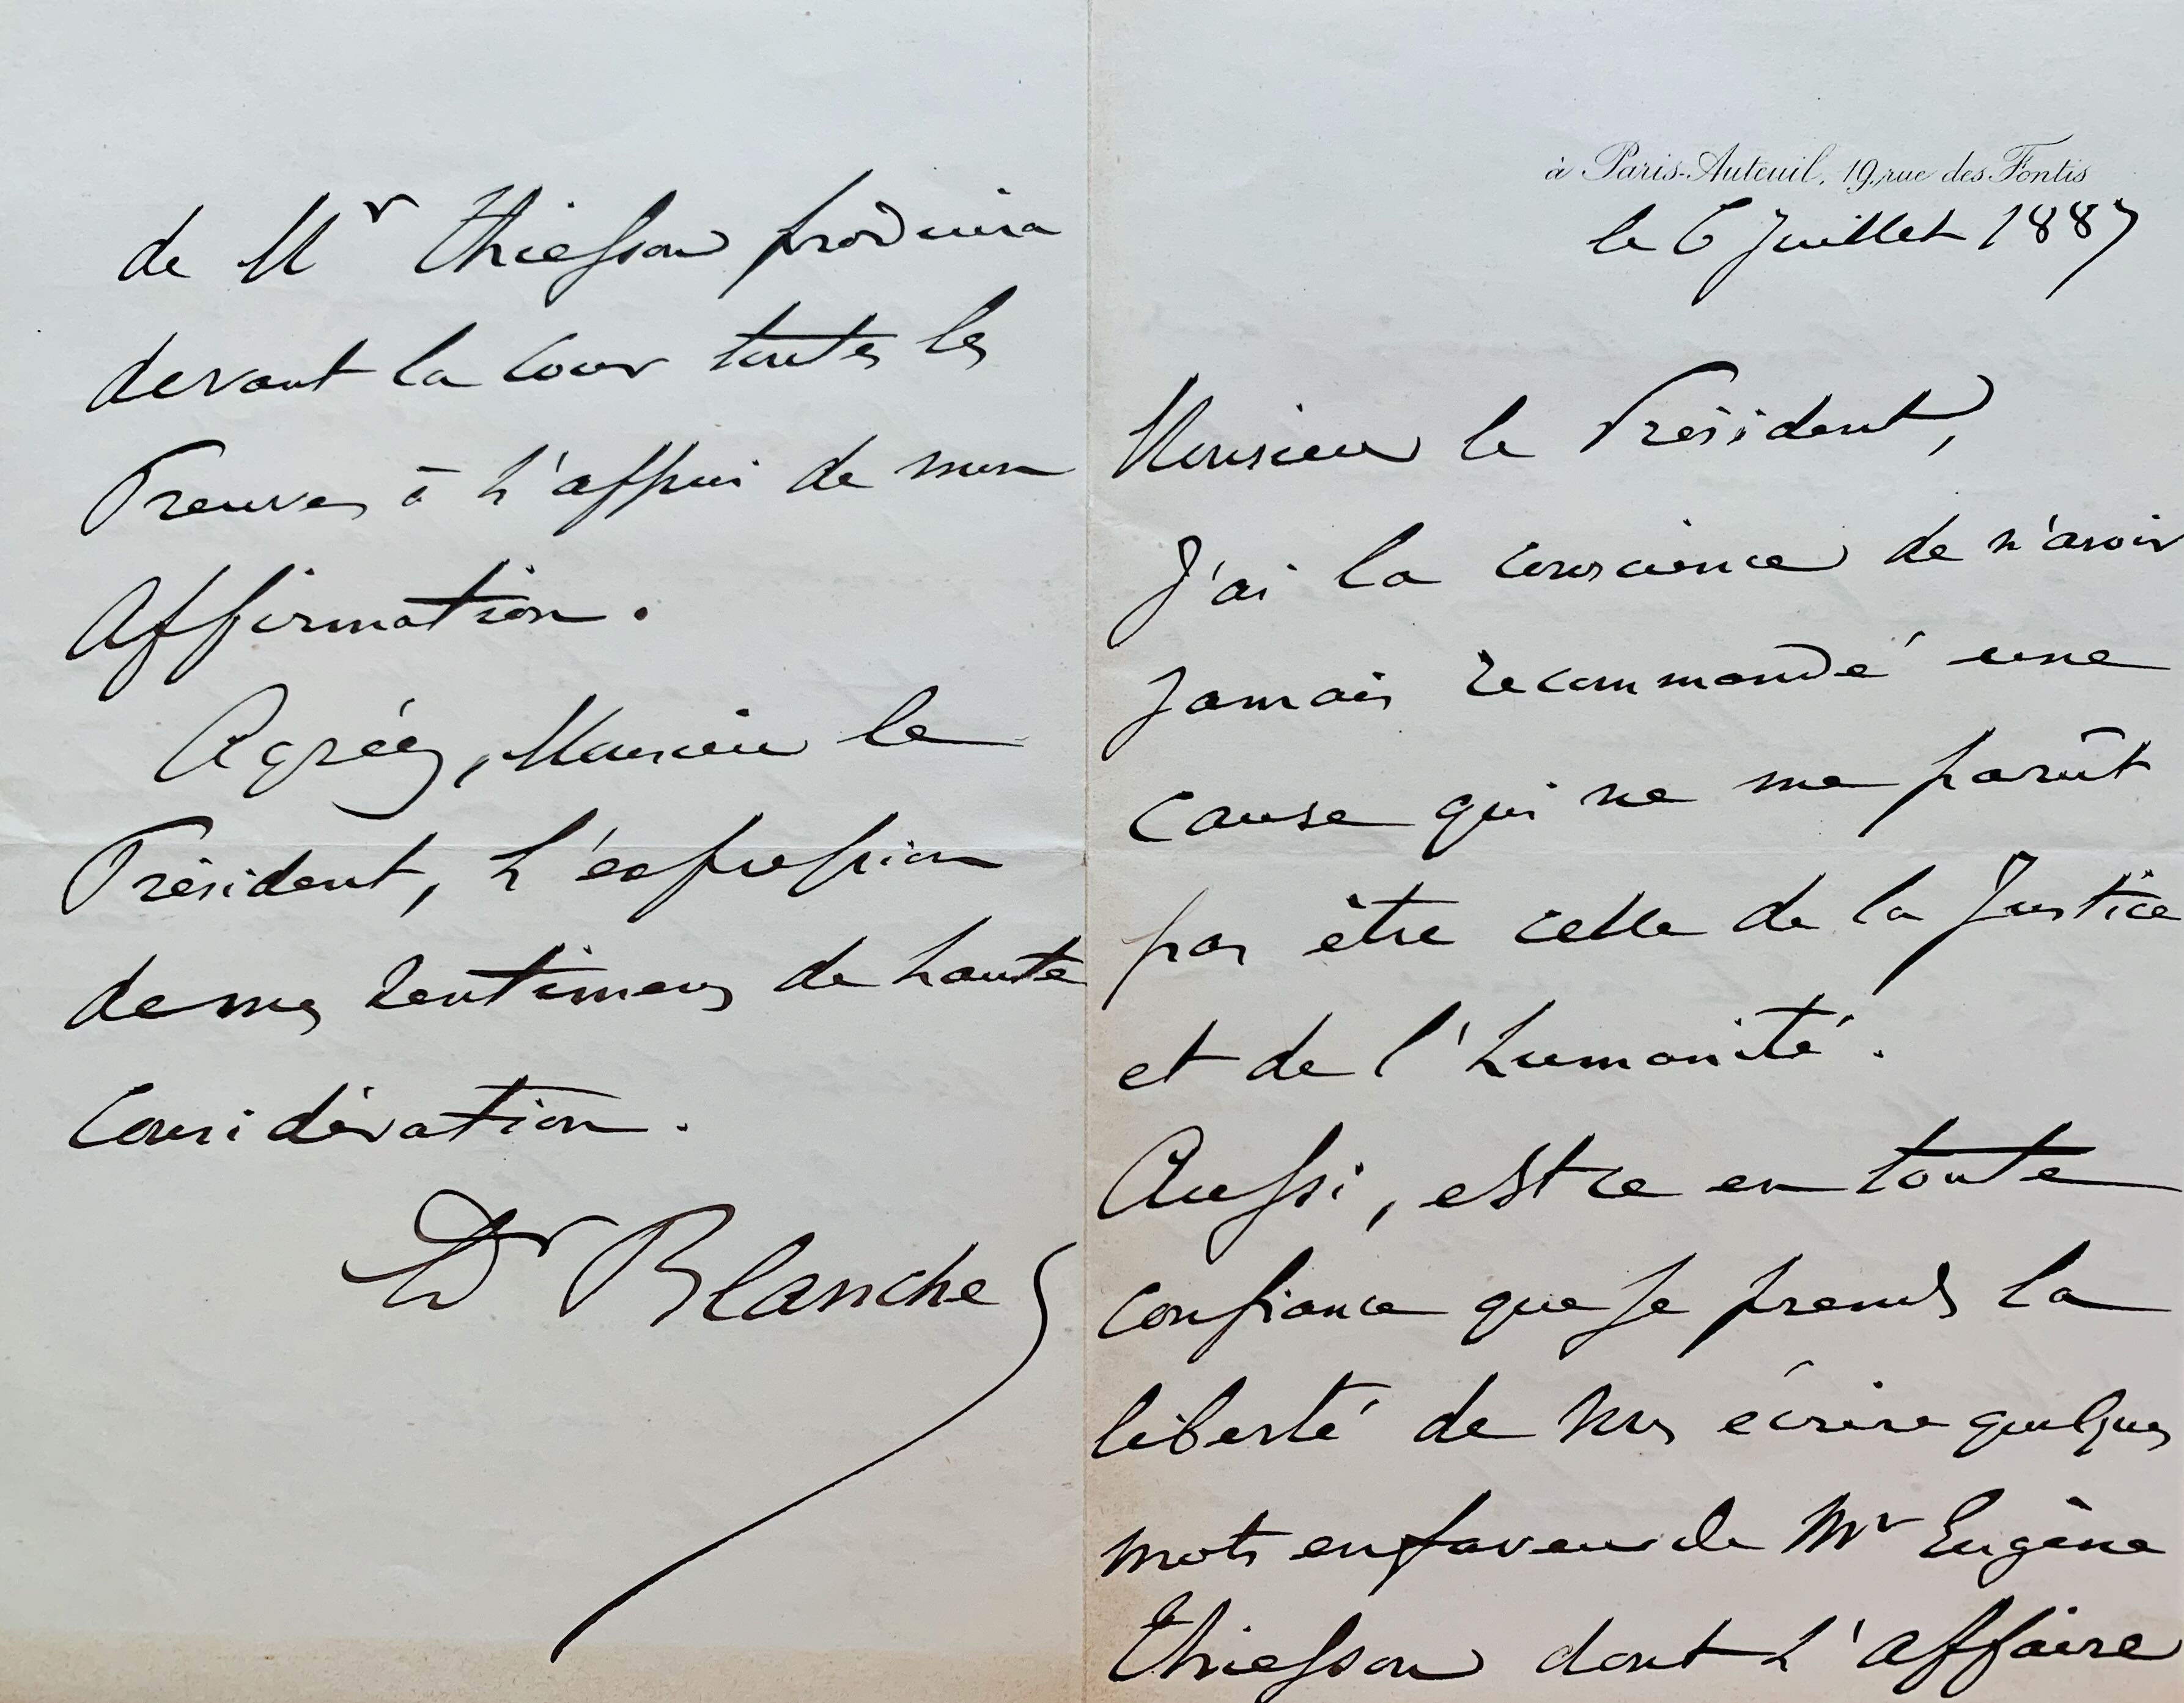 à Paris-Auteuil, 19, rue des Fontis
le 6 Juillet 1887
Monsieur le Président,
J'ai la conscience de n'avoir
jamais recommandé une
cause qui ne me parût
pas être celle de la Justice
et de l'humanité.
Aussi, est ce en toute
confiance que je prends la
liberté de vous écrire quelques
mots en faveur de Mr Eugène
Thiesson dont l'affaire
de Mr Thiesson produira
devant la Cour toutes les
Preuves à l'appui de mon
Affirmation.
Agréez, Monsieur le
Président, l'expression
de mes sentimens de haute
Considération.
Dr Blanche